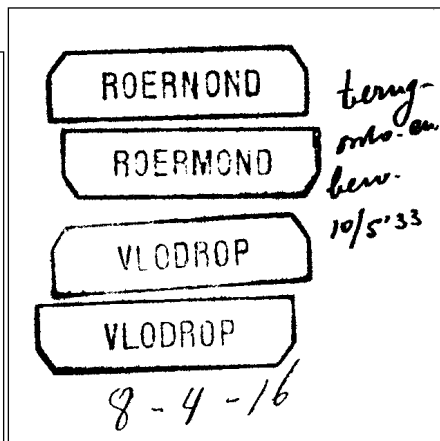 ROERNOND
ROERMOND
VLODROP
VLODROP
8-4-16
terug-
en
bew.
10/5'33